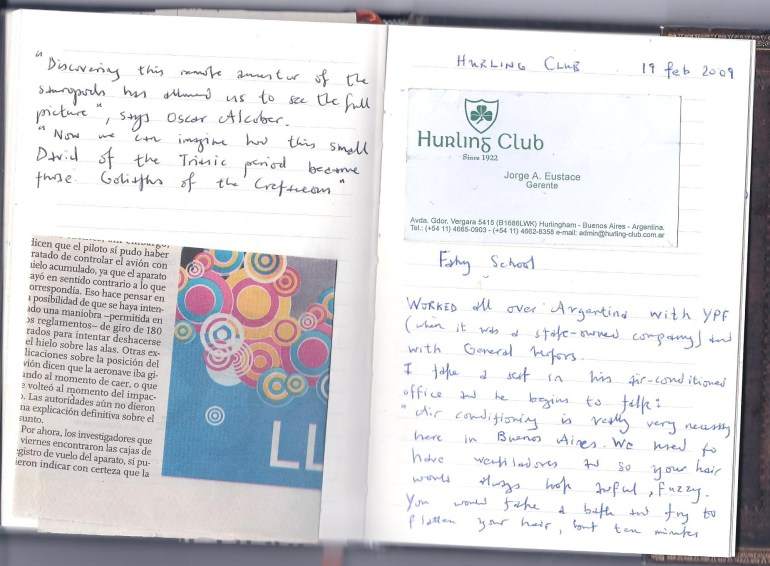 "Discovering this remote ancestor of the
sauropods has allowed us to see the full
picture", says Oscar Alcober.
"Now we can imagine how this small
David of the Triasic period became
those Goliaths of the Cretaceous"
dicen que el piloto sí pudo haber
ratado de controlar el avión con
ielo acumulado, ya que el aparato
ayó en sentido contrario a lo que
orrespondía. Eso hace pensar en
a posibilidad de que se haya inten-
do una maniobra –permitida en
os reglamentos– de giro de 180
rados para intentar deshacerse
el hielo sobre las alas. Otras ex-
licaciones sobre la posición del
vión dicen que la aeronave iba gi-
ndo al momento de caer, o que
e volteó al momento del impac-
o. Las autoridades aún no dieron
na explicación definitiva sobre el
sunto.
Por ahora, los investigadores que
viernes encontraron las cajas de
gistro de vuelo del aparato, sí pu-
ieron indicar con certeza que la
LL
HURLING CLUB 19 feb 2009
Hurling Club
Since 1922
Jorge A. Eustace
Gerente
Avda. Gdor. Vergara 5415 (B1686LWK) Hurlingham - Buenos Aires - Argentina.
Tel.: (+54 11) 4665-0903 - (+54 11) 4662-8358 e-mail: admin@hurling-club.com.ar
School
WORKED all over Argentina with YPF
(when it was a state-owned company) and
with General Motors.
I take a seat in his air-conditioned
office and he begins to talk:
"Air conditioning is really very necessary
here in Buenos Aires. We used to
have ventiladores and so your hair
would always look awful, fuzzy.
You would take a bath and try to
flatten your hair, but ten minutes